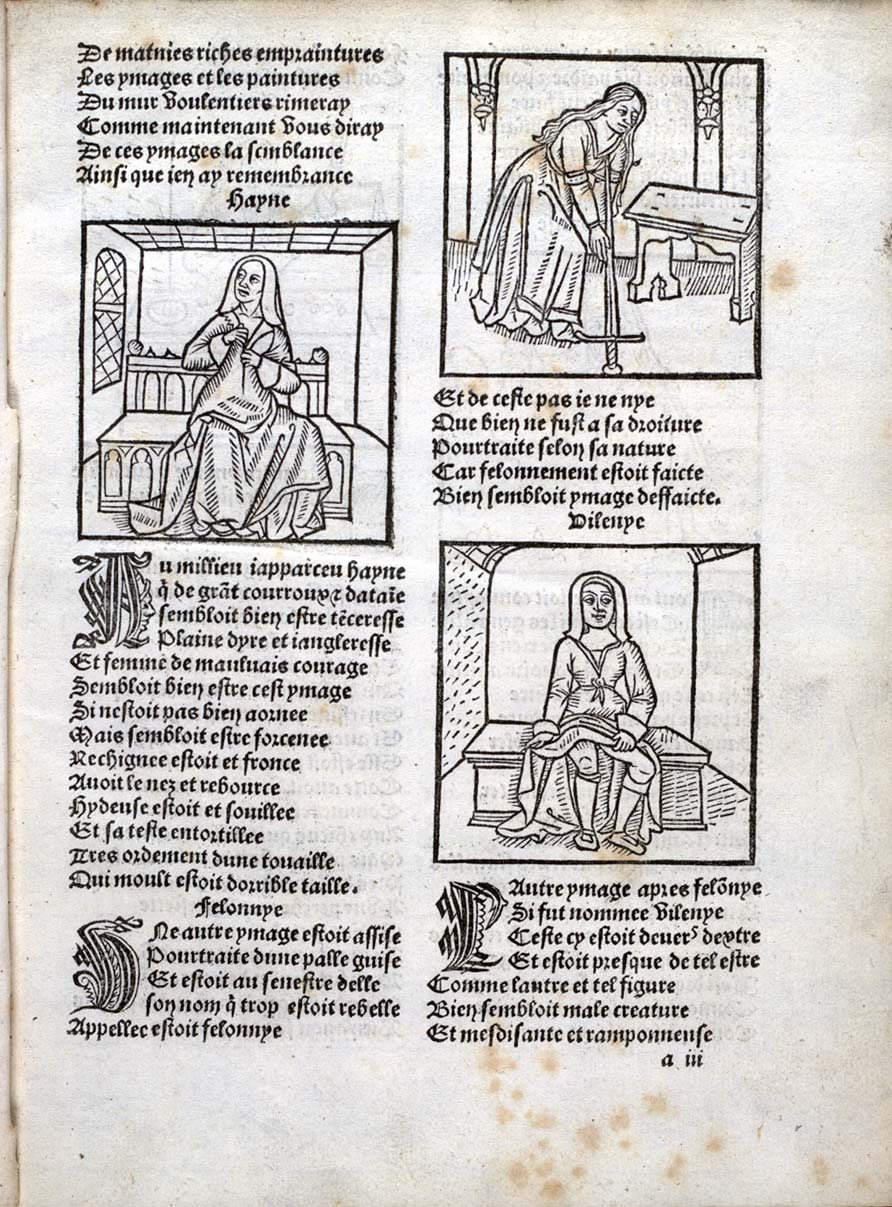 De maintes riches empraintures
Les ymages et les paintures
Du mur voulentiers rimeray
Comme maintenant vous diray
De ces ymages la semblance
Ainsi que ien ay remembrance
Hayne
AU millieu iapparceu hayne
q̃ de grãt courroux ⁊ dataïe
sembloit bien estre tẽceresse
Plaine dyre et iangleresse
Et femme de mauluais courage
Sembloit bien estre cest ymage
Si nestoit pas bien aornee
Mais sembloit estre forcenee
Rechignee estoit et fronce
Auoit le nez et rebource
Hydeuse estoit et souillee
Et sa teste entortillee
Tres ordement dune touaille
Qui moult estoit dorrible taille.
Felonnye
UNe autre ymage estoit assise
Pourtraite dune palle guise
Et estoit au senestre delle
son nom q̃ trop estoit rebelle
Appellee estoit felonnye
Et de ceste pas ie ne nye
Que bien ne fust a sa droiture
Pourtraite selon sa nature
Car felonnement estoit faicte
Bien sembloit ymage deffaicte.
Vilenye
LAutre ymage apres felõnye
Si fut nommee vilenye
Ceste cy estoit deuerˢ dextre
Et estoit presque de tel estre
Comme lautre et tel figure
Bien sembloit male creature
Et mesdisante et ramponneuse
a iii